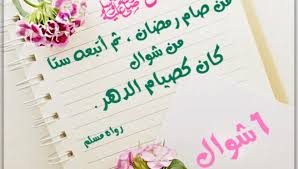 من صام رمضان ، ثم أتبعه ستًا
من شوال
كان كصيام الدهر .
رواه مسلم
٦ شوال